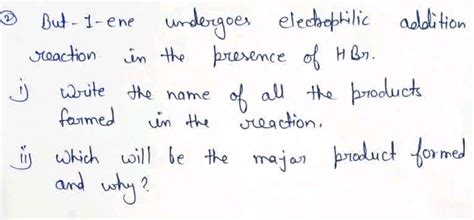 ② But-1-ene undergoes electrophilic addition
reaction in the presence of HBr.
i) Write the name of all the products
formed in the reaction.
ii) Which will be the major product formed
and why?